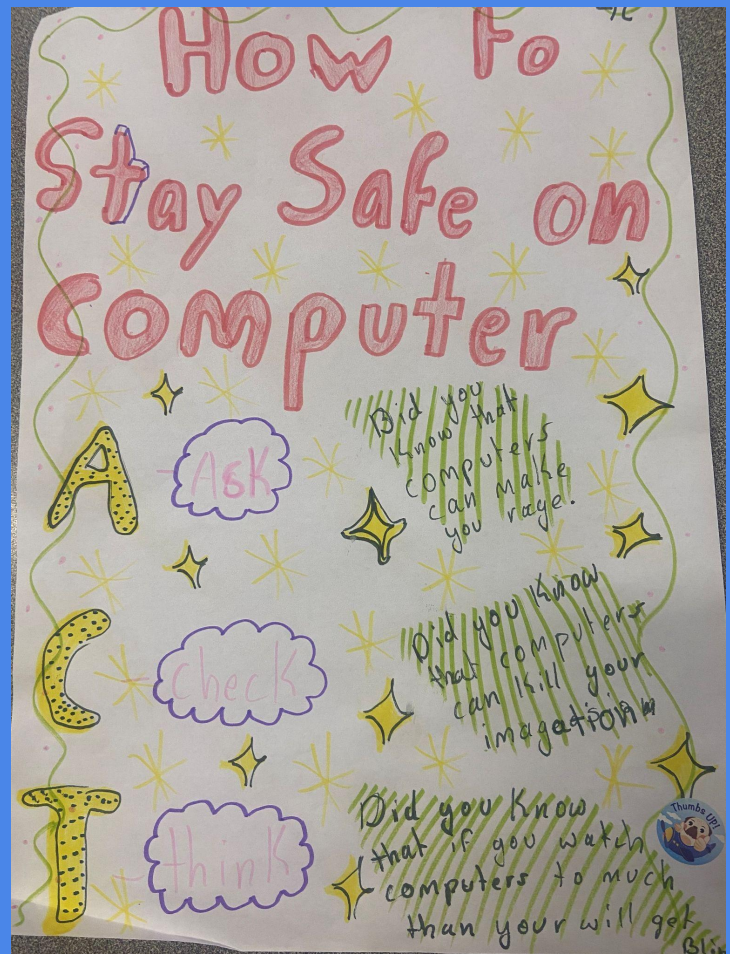 How to
Stay Safe on
Computer
A
Ask
Did you
know that
computers
can make
you rage!
C
check
Did you know
that computers
can kill your
imagation
T
think
Did you know
that if you watch
computers to much
than your will get
Thumbs UP!